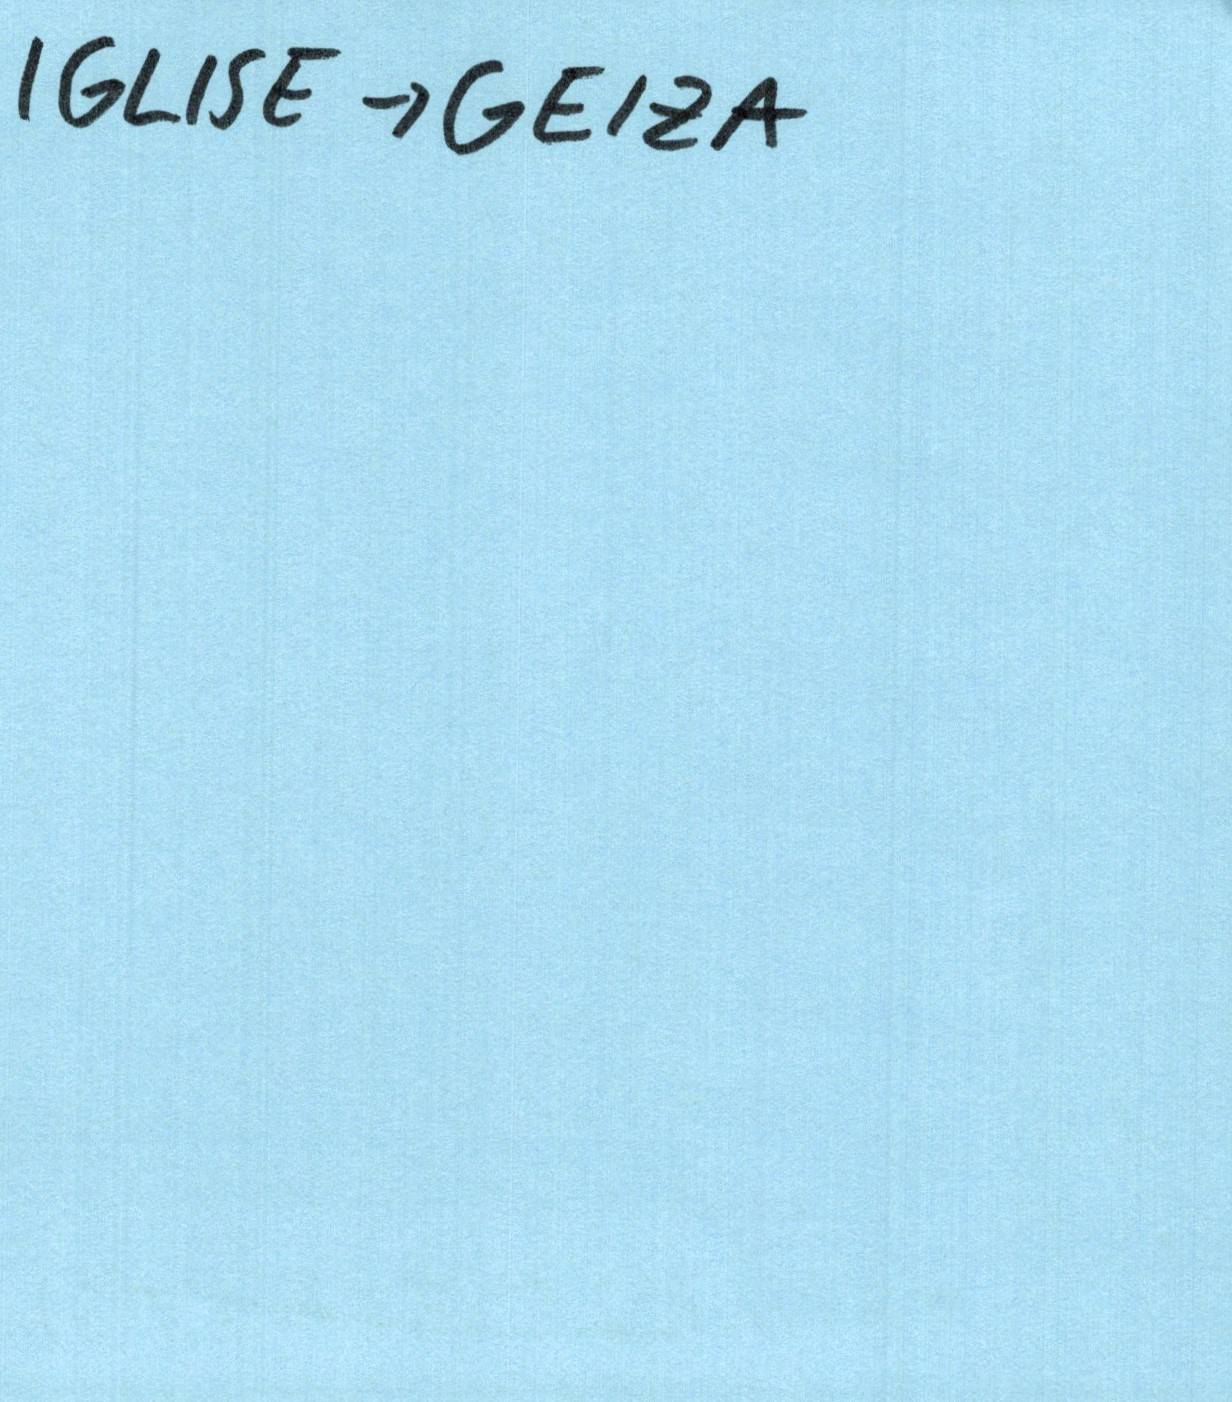 IGLISE → GEIZA